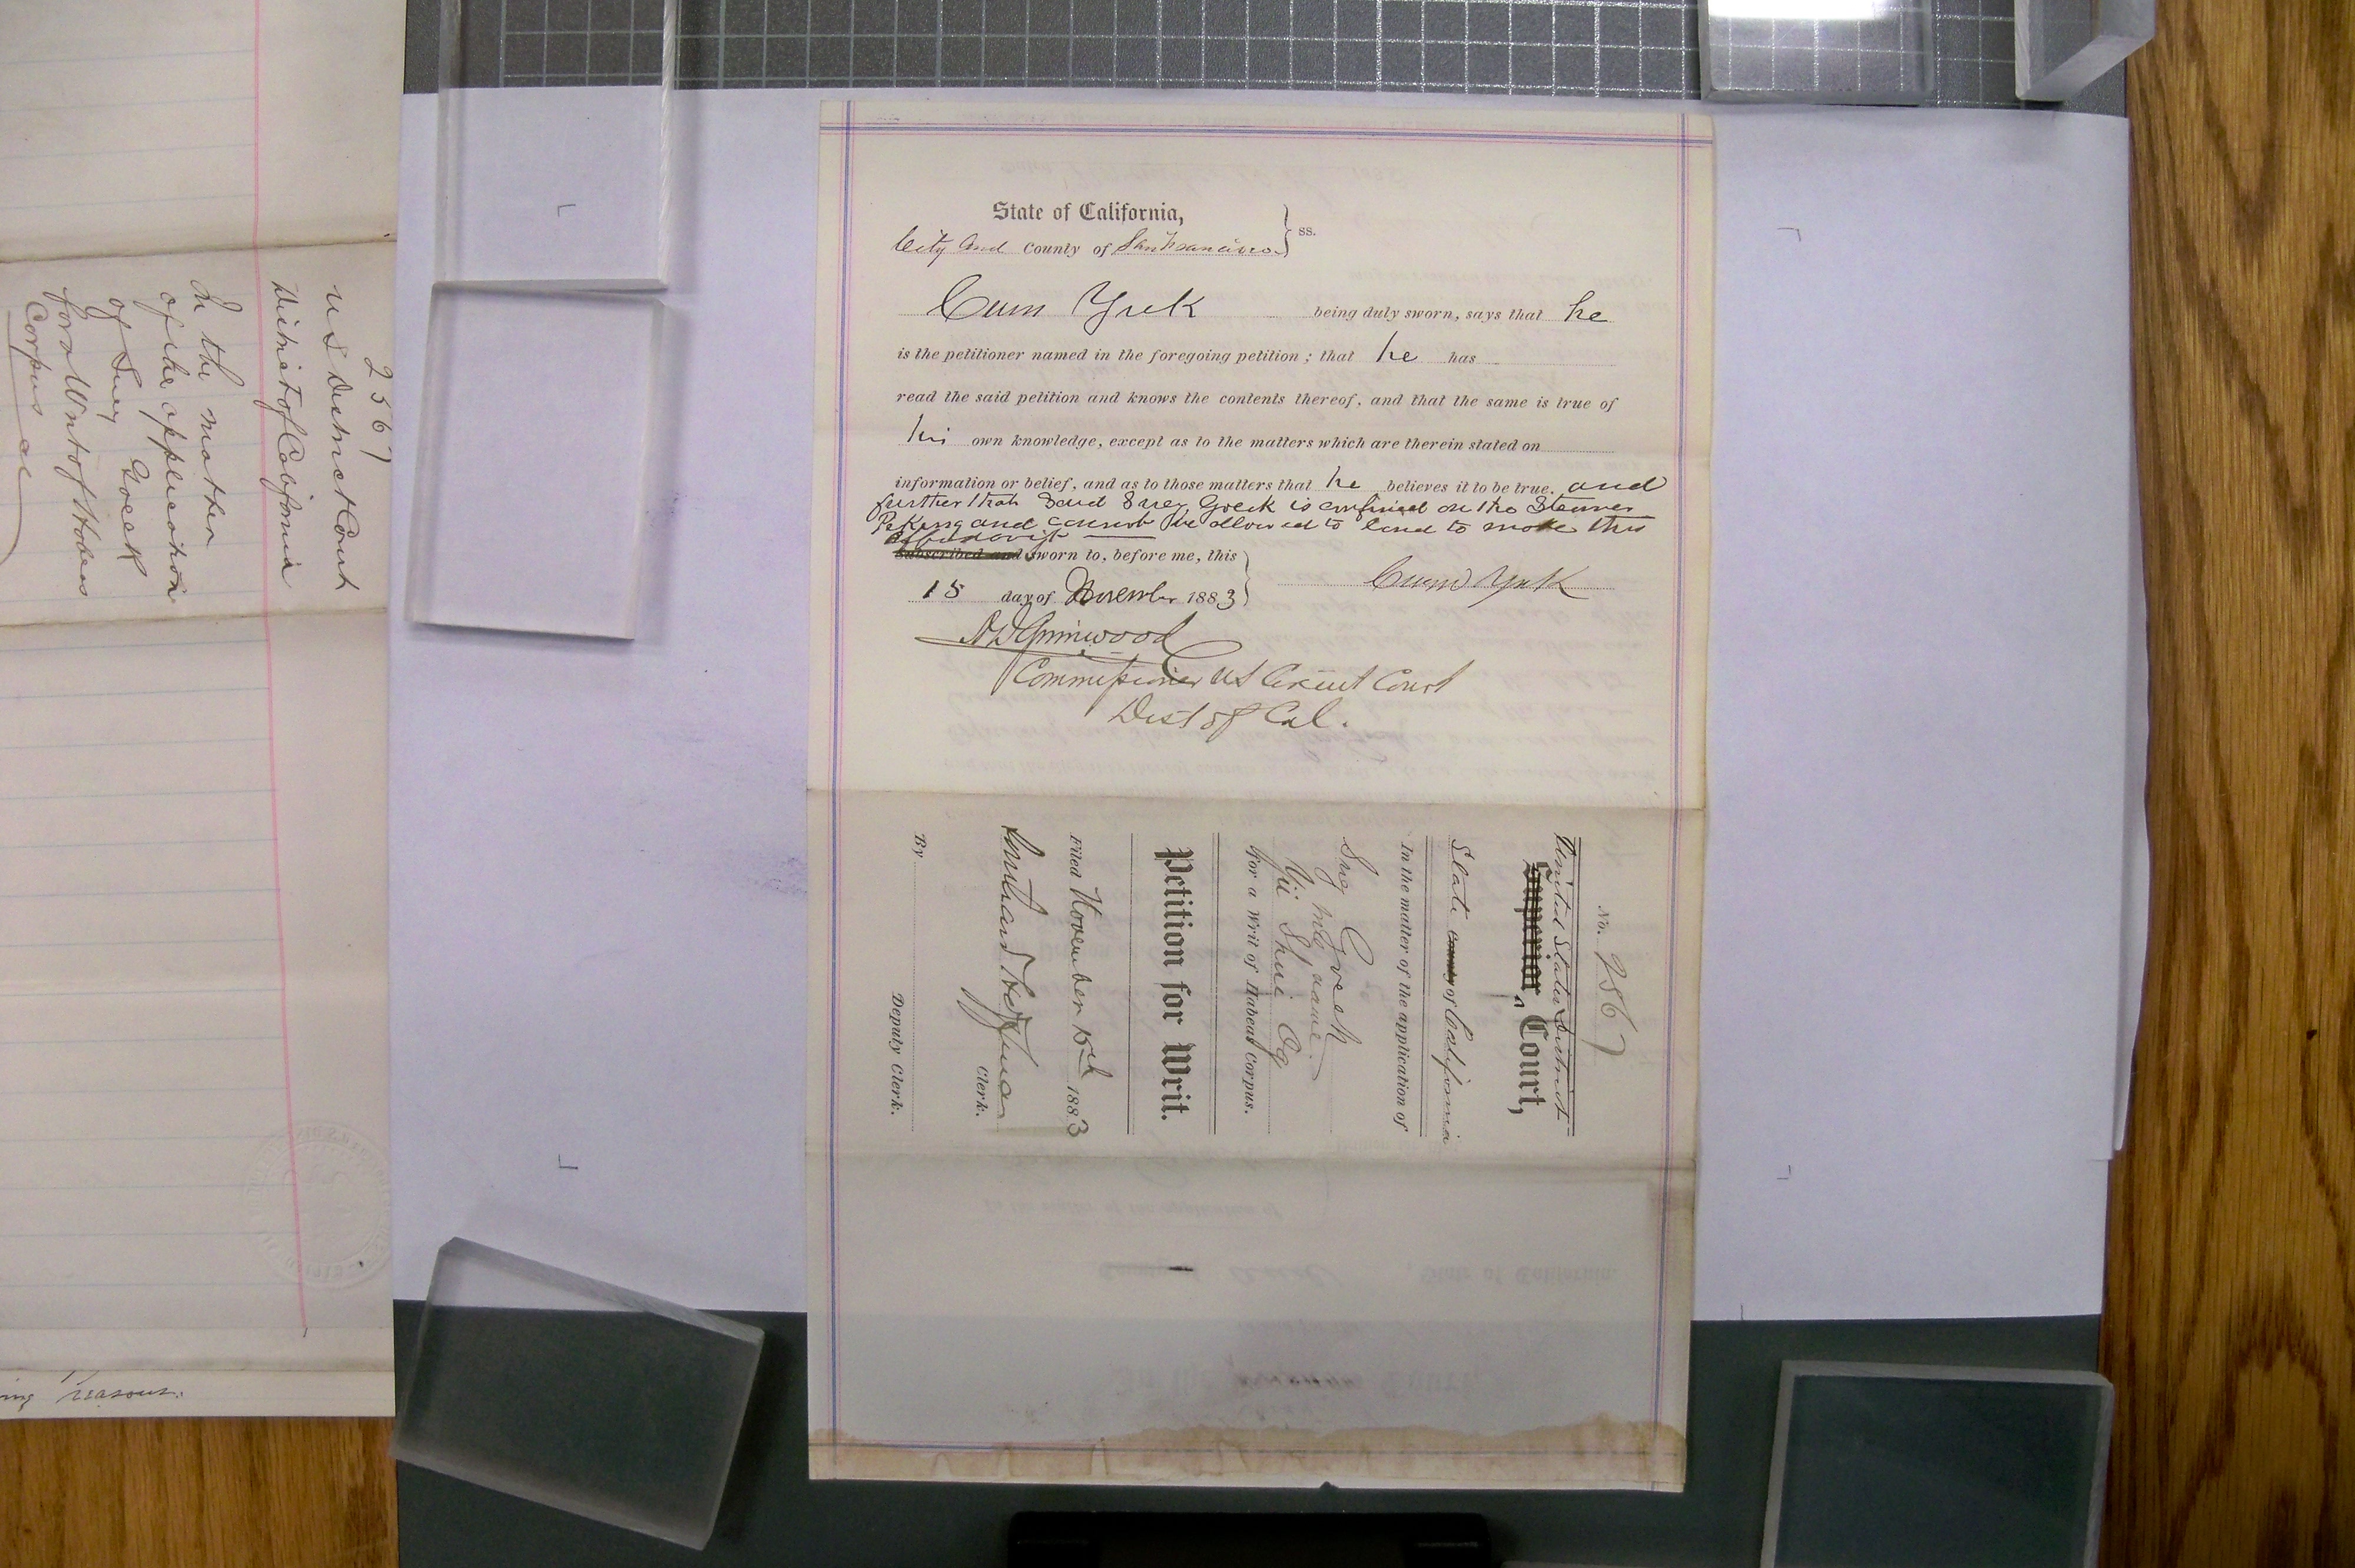 State of California,
City and County of San Francisco } ss.
Cum Yuk being duly sworn, says that he
is the petitioner named in the foregoing petition; that he has
read the said petition and knows the contents thereof, and that the same is true of
his own knowledge, except as to the matters which are therein stated on
information or belief, and as to those matters that he believes it to be true. and
further that said Sney Goek is confined on the Steamer
Peking and cannot be allowed to land to make this
affidavit
Subscribed and sworn to, before me, this
15 day of November 1883
Cum Yuk
Commissioner US Circuit Court
Dist of Cal.
No. 2567
United States District
Superior Court,
State County of California
In the matter of the application of
Sney Goek
For a Writ of Habeas Corpus.
Petition for Writ.
Filed November 15th 1883
Clerk.
By
Deputy Clerk.
2567
US District Court
District of California
In the matter
of the application
of Sney Goeek
for a Writ of Habeas
Corpus
reasons.